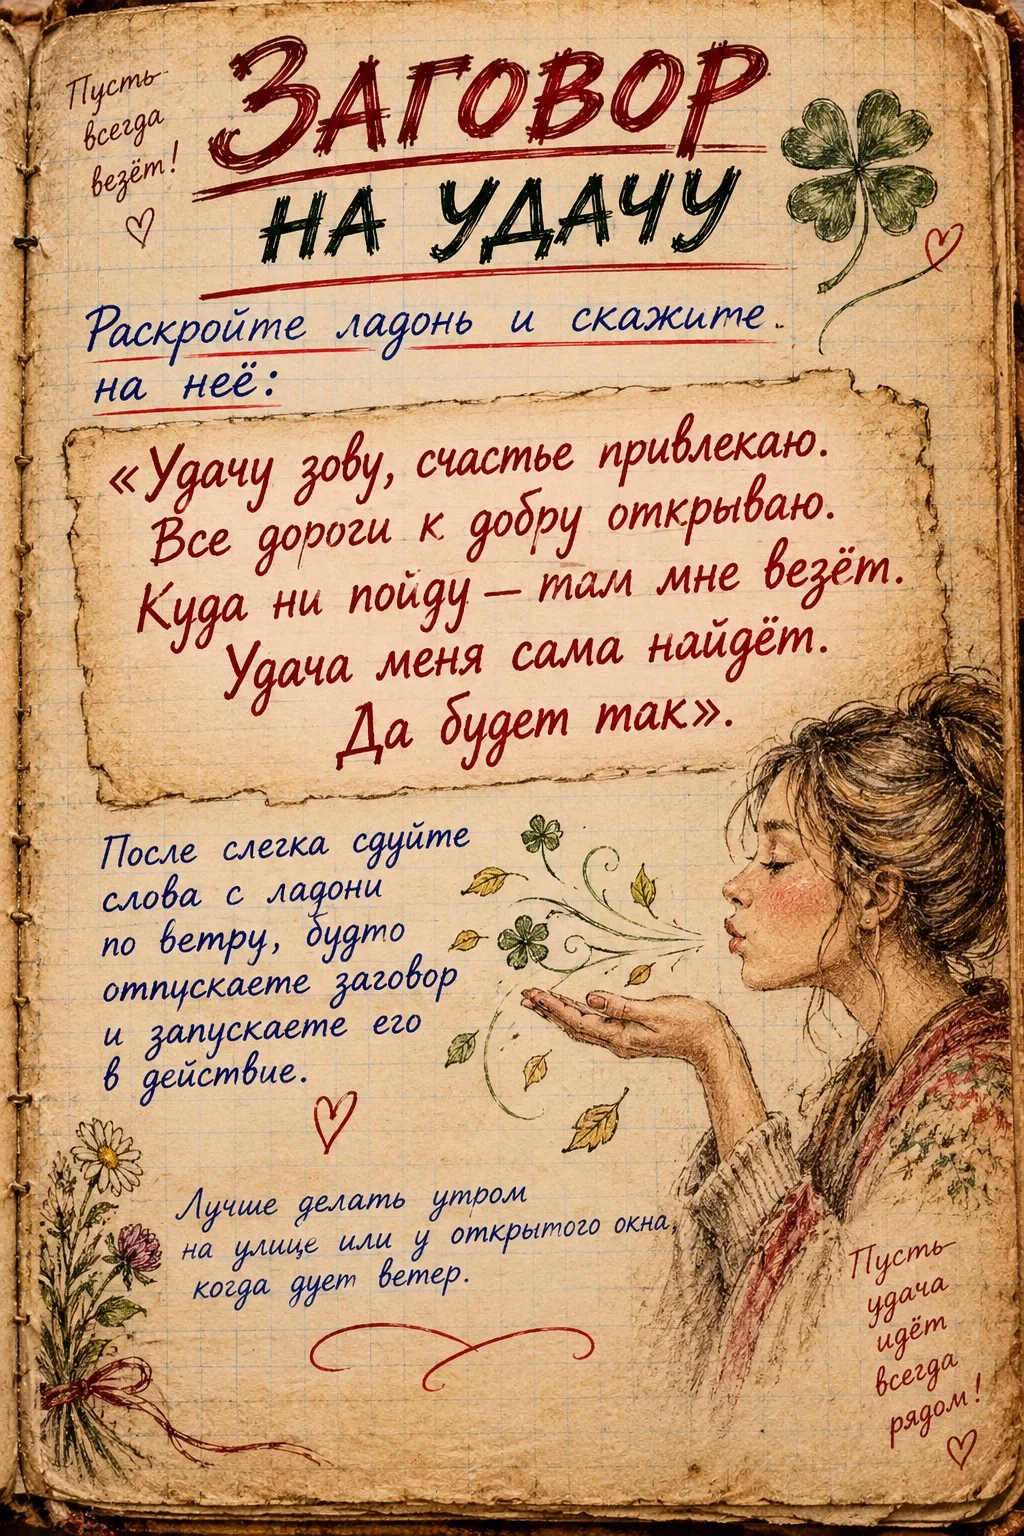 Пусть
всегда
везёт!
ЗАГОВОР
НА УДАЧУ
Раскройте ладонь и скажите
на неё:
«Удачу зову, счастье привлекаю.
Все дороги к добру открываю.
Куда ни пойду — там мне везёт.
Удача меня сама найдёт.
Да будет так».
После слегка сдуйте
слова с ладони
по ветру, будто
отпускаете заговор
и запускаете его
в действие.
Лучше делать утром
на улице или у открытого окна,
когда дует ветер.
Пусть
удача
идёт
всегда
рядом!